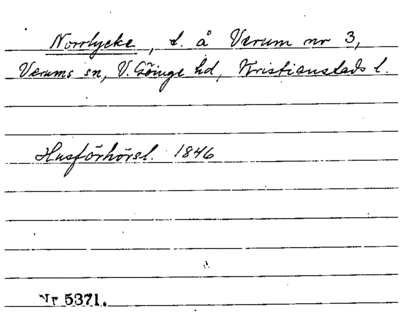 Norrlycke, t. å Verum nr 3,
Verums sn, V. Göinge hd, Kristianstads l.
Husförhörsl. 1846
Nr 5371.